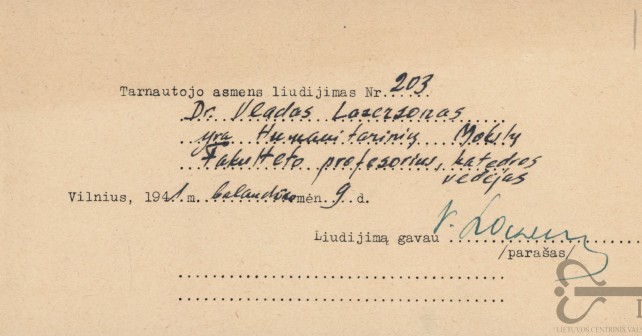 Tarnautojo asmens liudijimas Nr. 203
Dr. Vladas Lazersonas
yra Humanitarinių Mokslų
Fakulteto profesorius, katedros
vedėjas
Vilnius, 1941 m. balandžio mėn. 9 d.
Liudijimą gavau V. Lazerson
/parašas/
"LIETUVOS CENTRINIS VALS